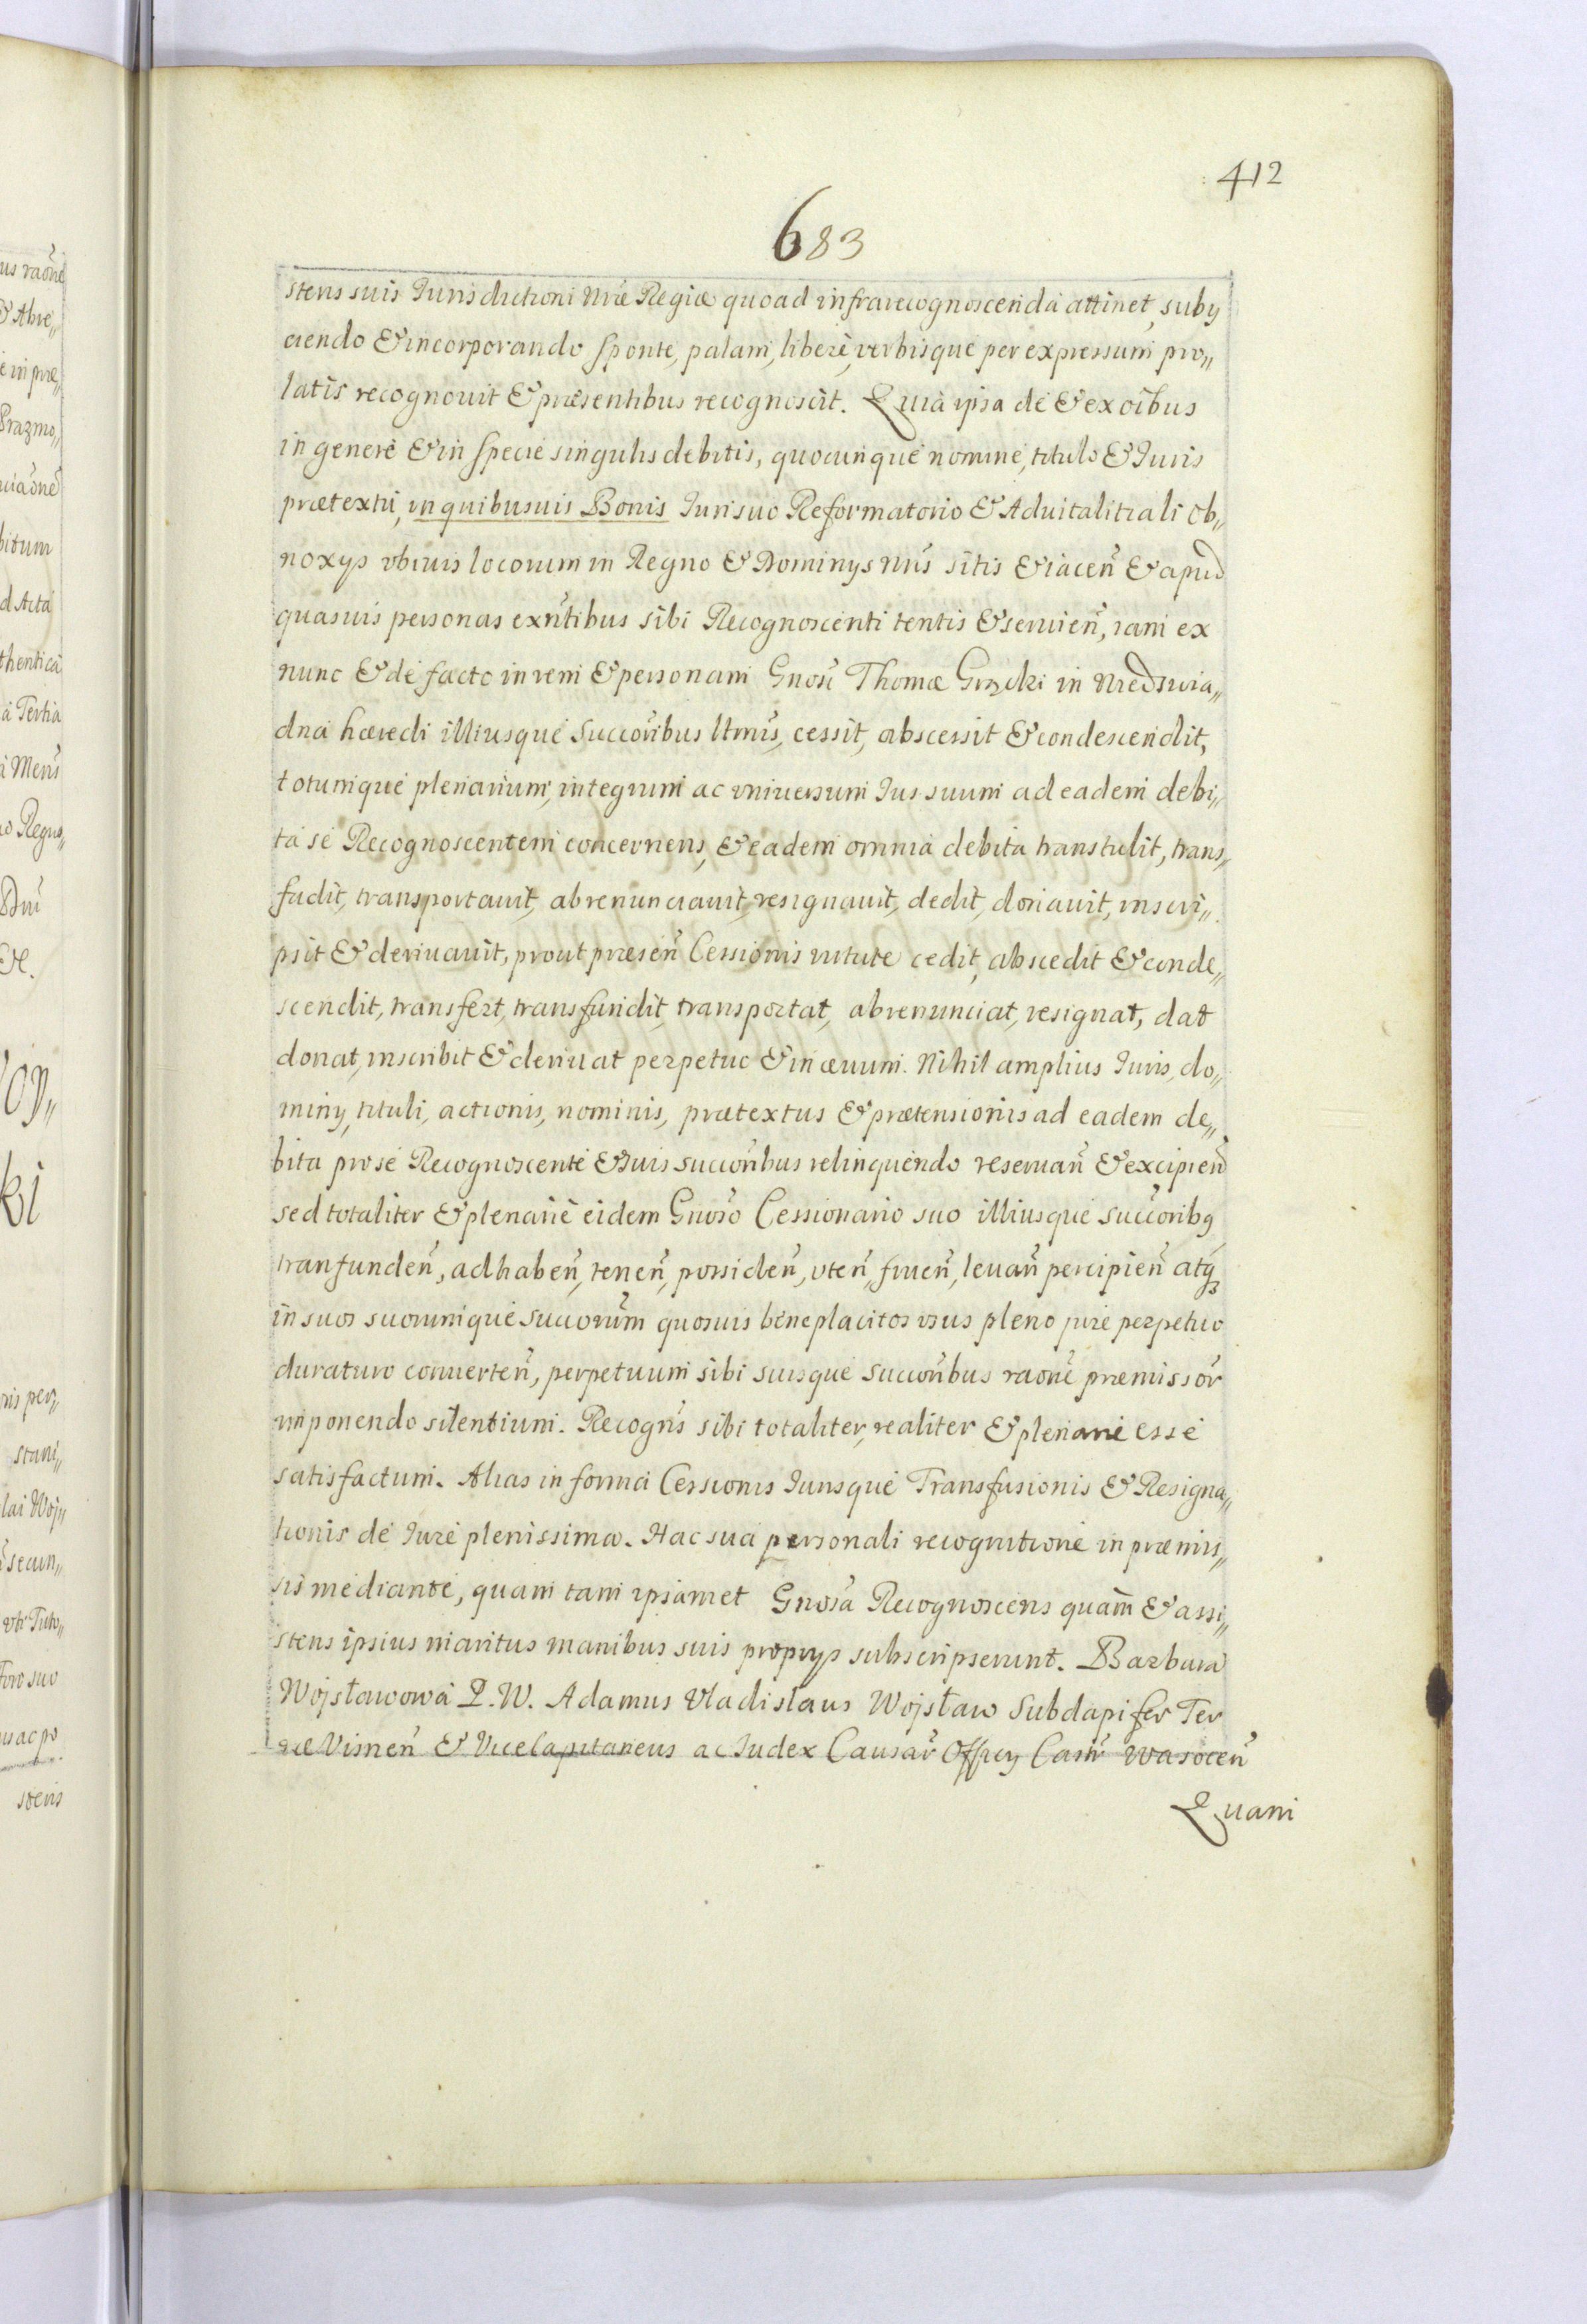 412
683
stens suis Jurisdictioni Nrae Regiae quoad infrarecognoscenda attinet, suby
ciendo & incorporando sponte, palam, libere, verbisque per expressum pro„
latis recognovit & praesentibus recognoscit. Quia ipsa de & ex oibus
in genere & in specie singulis debitis, quocunque nomine, titulo & Juris
praetextu, in quibusuis Bonis Juri suo Reformatorio & Aduitalitiali ob„
noxys vbiuis locorum in Regno & Dominys Nris sitis & iacen̄ & apud
quasuis personas exn̄tibus sibi Recognoscenti tentis & seruien̄, iam ex
nunc & de facto in rem & personam Gnosi Thomae Grzcki in Niedzwia„
dna haeredi illiusque Succōribus ltmis, cessit, abscessit & condescendit,
totumque plenarium, integrum ac vniuersum Jus suum ad eadem debi„
ta se Recognoscentem concernens, & eadem omnia debita transtulit, trans„
fudit, transportauit, abrenunciauit, resignauit, dedit, donauit, inscri„
psit & deriuauit, prout praesen̄ Cessionis virtute cedit, abscedit & conde„
scendit, transfert, transfundit, transportat, abrenunciat, resignat, dat
donat, inscribit & deriuat perpetuo & in aeuum. Nihil amplius Juris, do„
miny, tituli, actionis, nominis, praetextus & praetensionis ad eadem de„
bita pro se Recognoscente & suis succōribus relinquendo reseruan̄ & excipien̄
sed totaliter & plenarie eidem Gnoso Cessionario suo illiusque succōribq
tranfunden̄, ad haben̄, tenen̄, possiden̄, vten̄, fruen̄, leuan̄ percipien̄ atq
in suos suorumque succorūm quosuis beneplacitos vsus pleno jure perpetuo
duraturo conuerten̄, perpetuum sibi suisque succōribus raōne praemissor̄
imponendo silentium. Recogn̄s sibi totaliter, realiter & plenarie esse
satisfactum. Alias in forma Cessionis Jurisque Transfusionis & Resigna„
tionis de Jure plenissima. Hac sua personali recognitione in praemis„
sis mediante, quam tam ipsamet Gnosa Recognoscens quam̄ & assi„
stens ipsius maritus manibus suis proprys subscripserunt. Barbara
Wojsławowa P. W. Adamus Vladislaus Wojsław Subdapifer Ter
rae Visnen̄ & ViceCapitaneus ac Judex Causar̄ Officy Castr̄ Wasocen̄
Quam